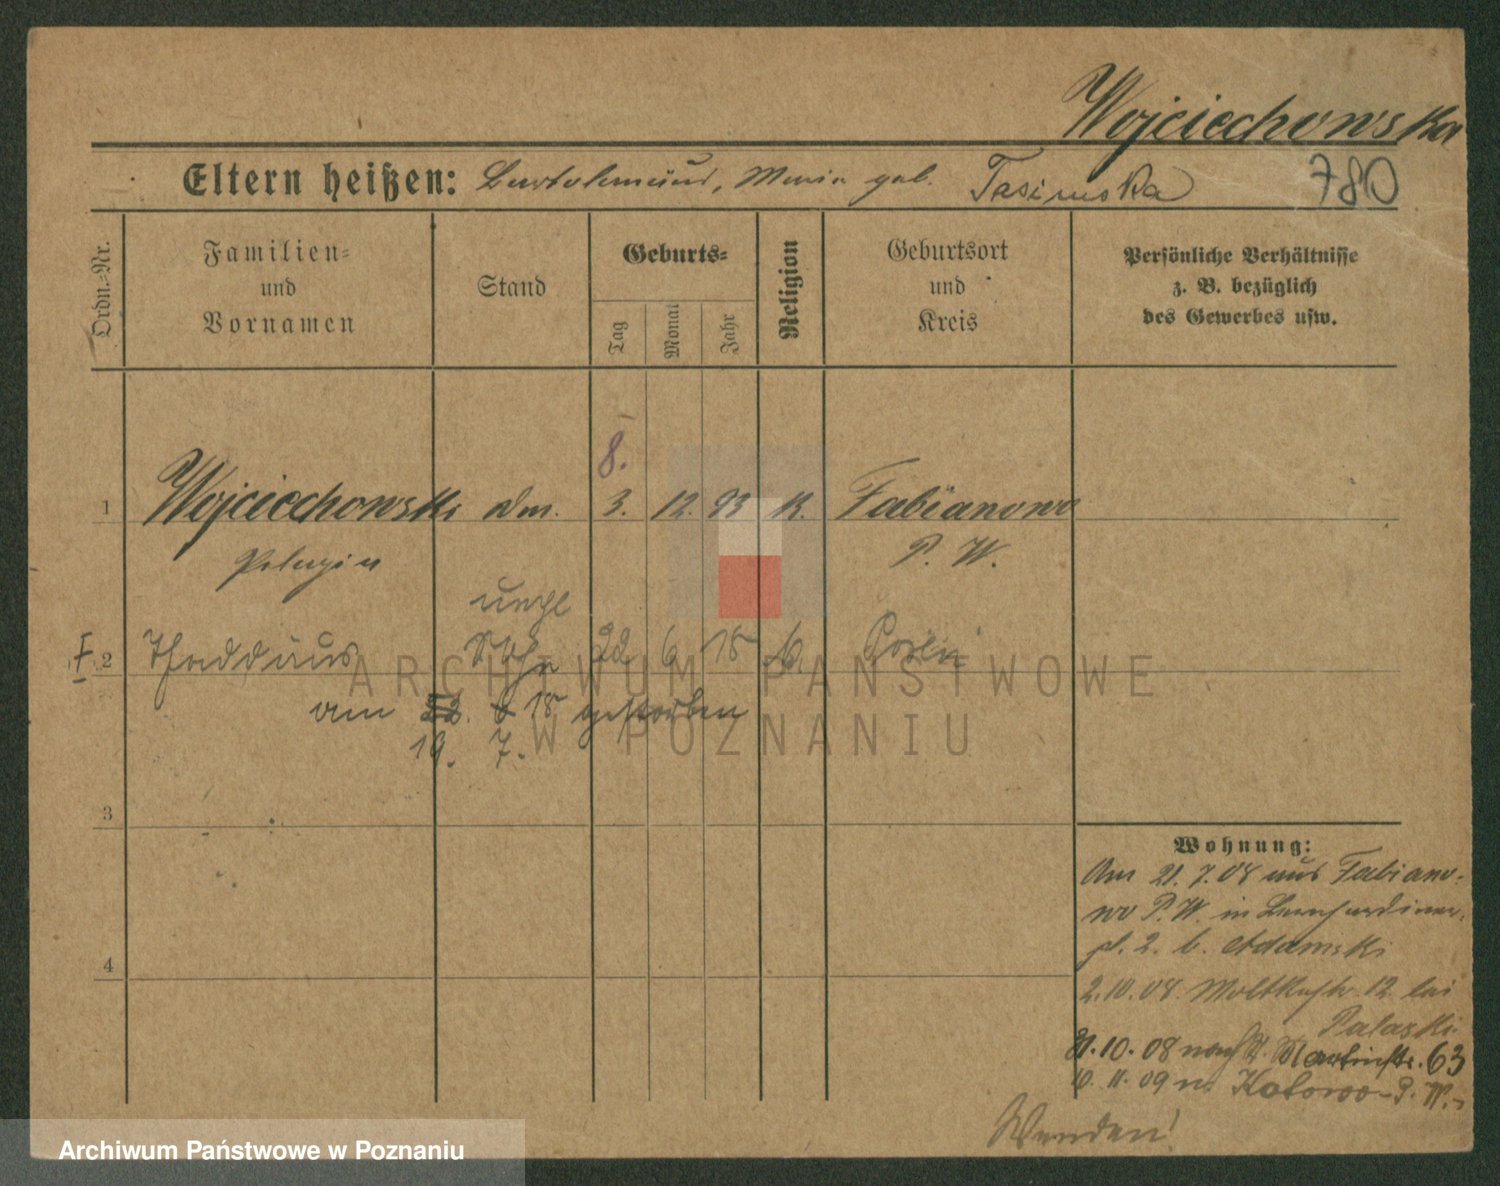 Wojciechowska
Eltern heißen: Bartolomäus, Maria geb. Tasiemska 780
Ordn.-Nr.
Familien-
und
Vornamen
Stand
Geburts-
Tag
Monat
Jahr
Religion
Geburtsort
und
Kreis
Persönliche Verhältnisse
z. B. bezüglich
des Gewerbes usw.
8.
1 Wojciechowski 3. 12. 93 k. Fabianowo
Pelagia P. W.
unehl
2 Thaddäus Sohn 22 6 18 k. Posen
am 22. 6 18 gestorben
19. 7.
3
4
Wohnung:
Am 21.7.08 aus Fabiano-
wo P.W. in Bernhardiner-
pl. 2. b. Adamski
2.10.08. Moltkestr. 12 bei
Rataski
31.10.08 nach St. Martinstr. 63
10.11.09 n. Kotowo - P. W.-
Wenden!
ARCHIWUM PAŃSTWOWE
W POZNANIU
Archiwum Państwowe w Poznaniu